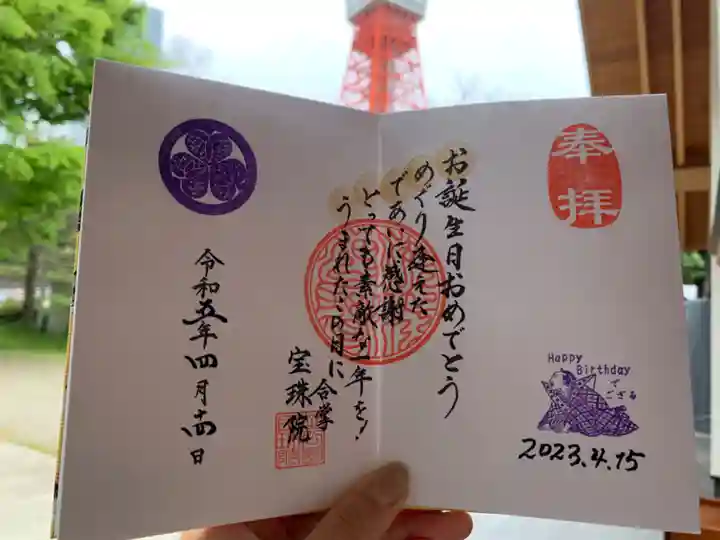 奉拝
お誕生日おめでとう
めぐり逢えた
であいに感謝
とっても素敵な一年を!
うまれたこの日に 合掌
宝珠院
令和五年四月十四日
Happy
Birthday
で
ござる
2023.4.15